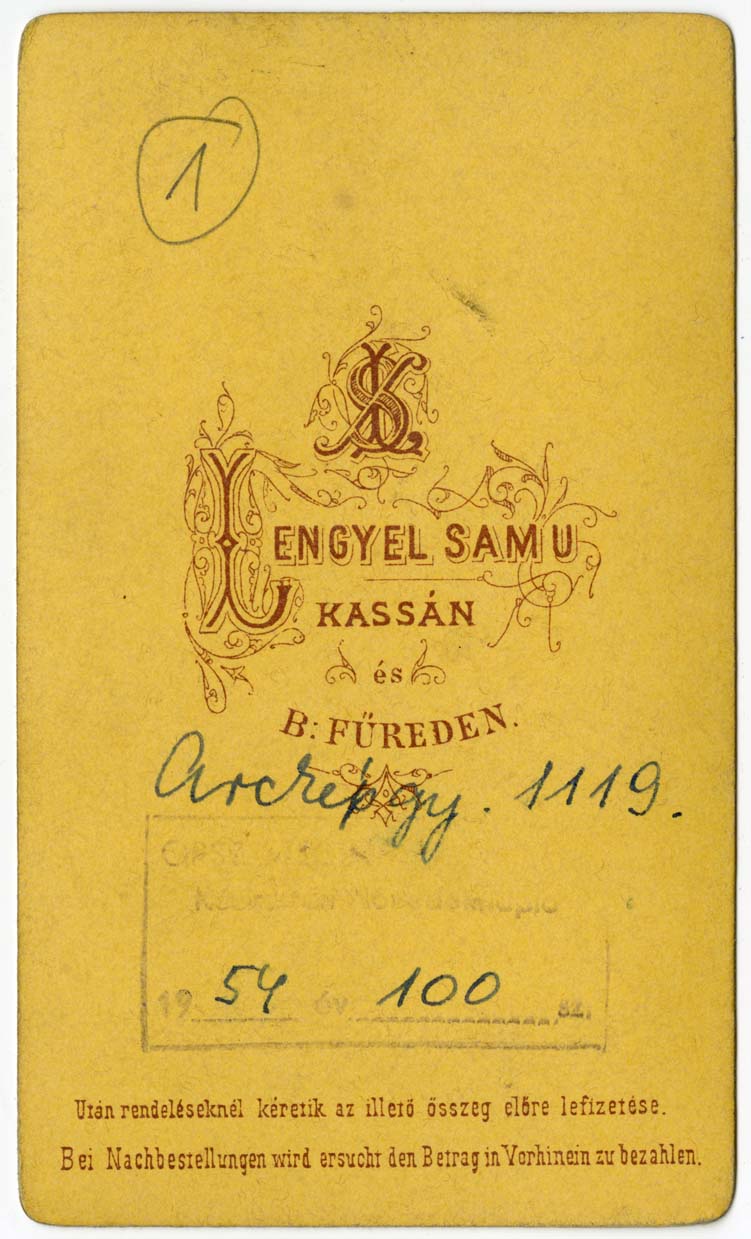 1
LS
LENGYEL SAMU
KASSÁN
és
B: FÜREDEN.
Arcképgy. 1119.
1954 év 100 sz.
Után rendeléseknél kéretik az illető összeg előre lefizetése.
Bei Nachbestellungen wird ersucht den Betrag in Vorhinein zu bezahlen.